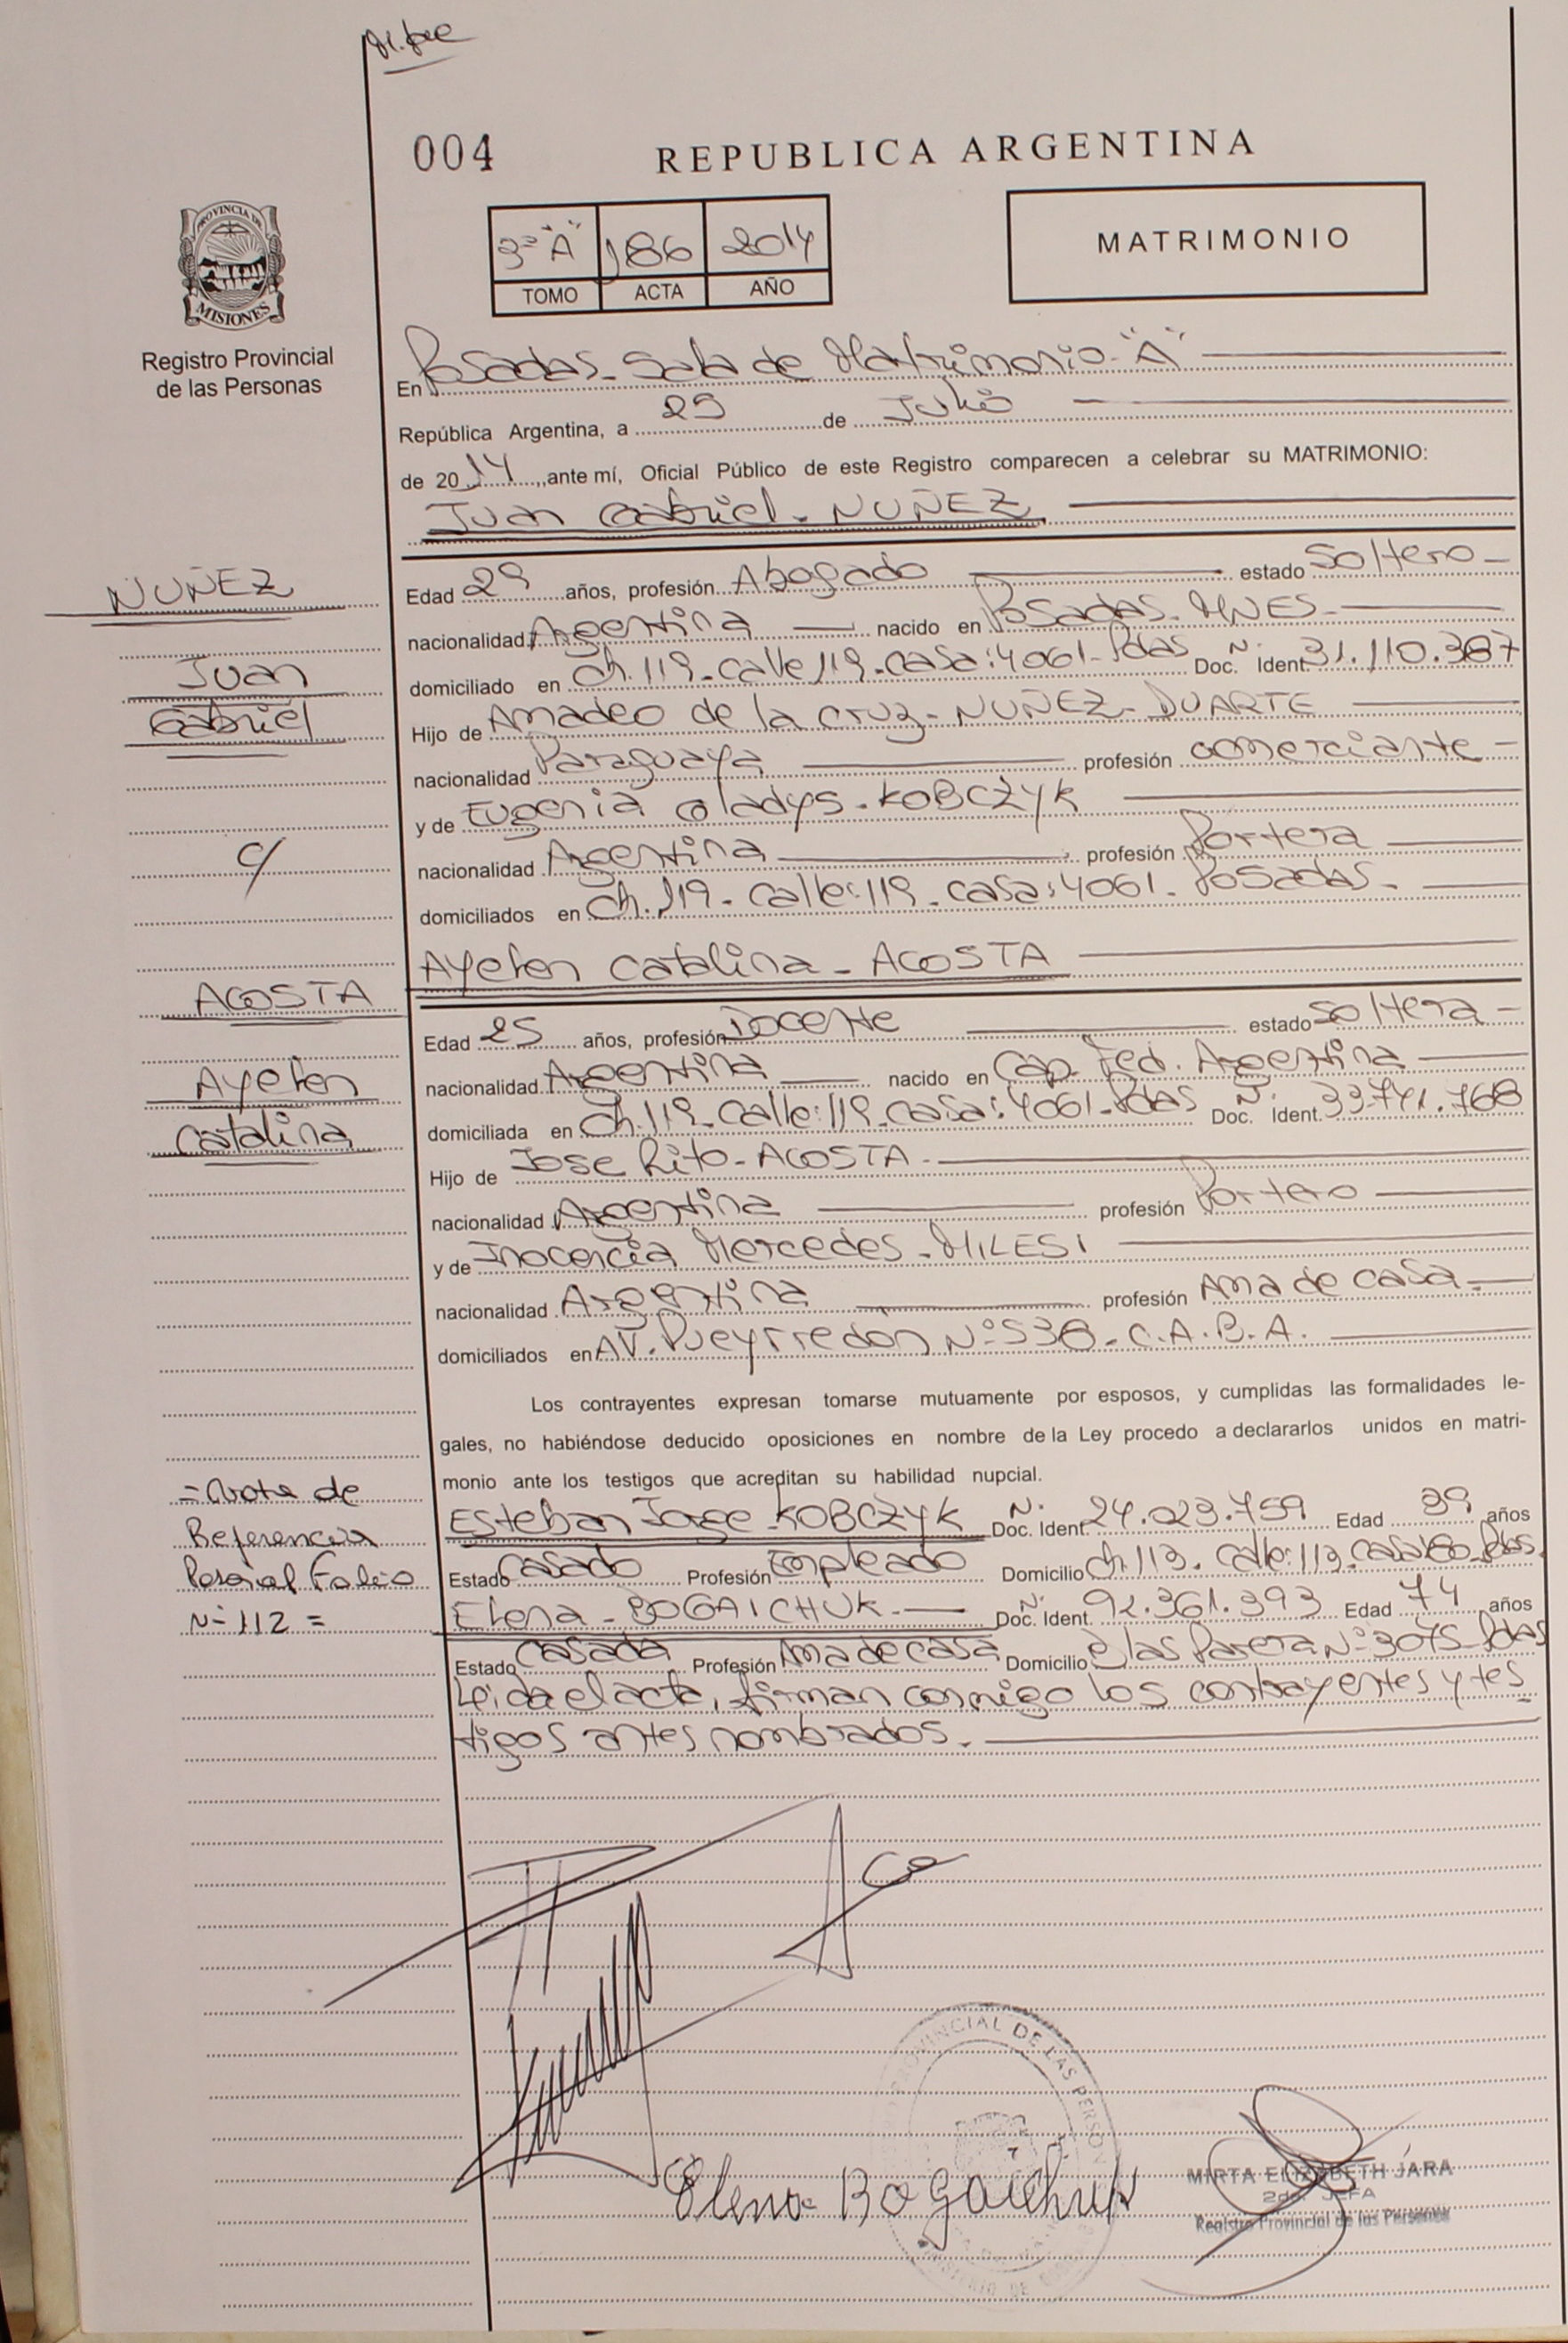 004
REPUBLICA ARGENTINA
PROVINCIA DE
MISIONES
Registro Provincial
de las Personas
3º "A" 186 2014
TOMO ACTA AÑO
MATRIMONIO
En Posadas - Sala de Matrimonio "A"
República Argentina, a 29 de Julio
de 2014, ante mí, Oficial Público de este Registro comparecen a celebrar su MATRIMONIO:
Juan Gabriel - NUÑEZ
NUÑEZ
Juan
Gabriel
c/
ACOSTA
Ayelen
Catalina
Edad 29 años, profesión Abogado estado Soltero -
nacionalidad Argentina nacido en Posadas - MNES -
domiciliado en Ch. 119 - calle 119 - casa: 4061 - Pdas Doc. Nº Ident. 31.110.387
Hijo de Amadeo de la Cruz - NUÑEZ - DUARTE
nacionalidad Paraguaya profesión comerciante -
y de Eugenia Gladys - KOBCZYK
nacionalidad Argentina profesión Portera
domiciliados en Ch. 119 - calle: 119 - casa: 4061 - Posadas -
Ayelen Catalina - ACOSTA
Edad 25 años, profesión Docente estado Soltera -
nacionalidad Argentina nacido en Cap. Fed. Argentina
domiciliada en Ch. 119 - calle: 119 - casa: 4061 - Pdas Doc. Nº Ident. 33.741.768
Hijo de Jose Rito - ACOSTA -
nacionalidad Argentina profesión Portero
y de Inocencia Mercedes - MILESI
nacionalidad Argentina profesión Ama de casa -
domiciliados en AV. Pueyrredón Nº 538 - C.A.B.A.
Los contrayentes expresan tomarse mutuamente por esposos, y cumplidas las formalidades le-
gales, no habiéndose deducido oposiciones en nombre de la Ley procedo a declararlos unidos en matri-
monio ante los testigos que acreditan su habilidad nupcial.
= Nota de
Referencia
Folio
Nº 112 =
Esteban Jorge - KOBCZYK Doc. Nº Ident. 24.023.759 Edad 39 años
Estado Casado Profesión Empleado Domicilio Ch. 113 - calle: 113 - casa Pdas.
Elena - BOGAICHUK - Doc. Nº Ident. 92.361.393 Edad 74 años
Estado Casada Profesión Ama de casa Domicilio Blas Parera Nº 3075 - Pdas
Leida el acta, firman conmigo los contrayentes y tes
tigos antes nombrados.
Elena BOgaichuk
PROVINCIAL DE LAS PERSON
MINISTERIO DE
MIRTA ELIZABETH JARA
2da. JEFA
Registro Provincial de las Personas